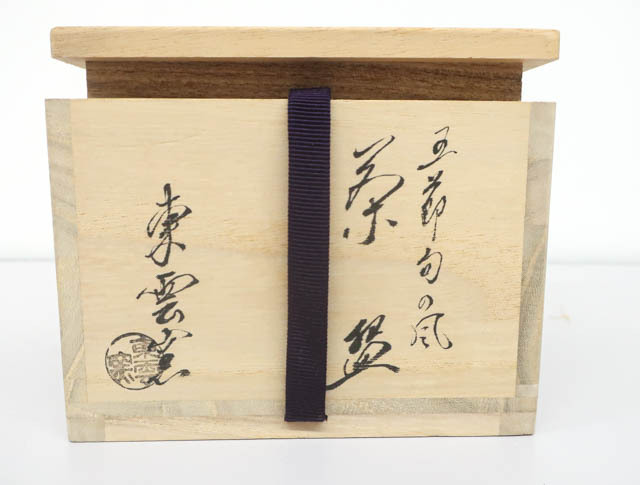 五節句の風
茶盌
東雲窯